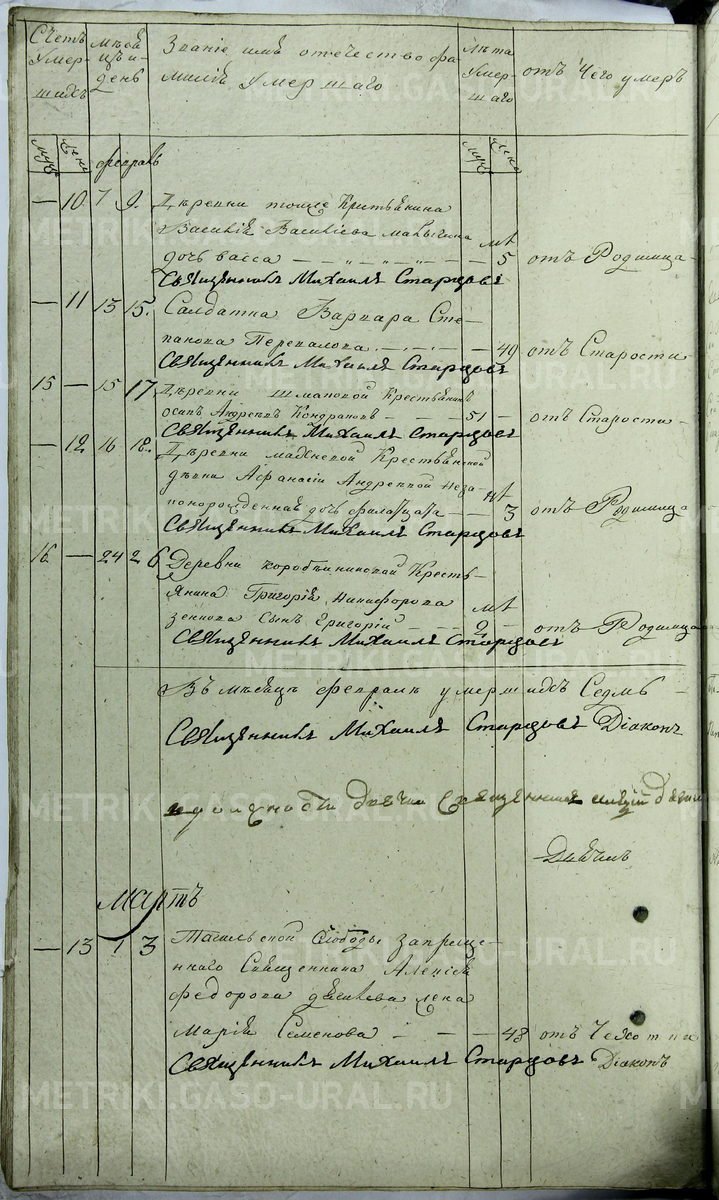 Счетъ Умер- шихъ
мѣся цъ и день
Званіе имѣ отечество фа
миліѣ Умершаго
Лѣта Умер шаго
отъ Чего умеръ
муж жен
февраль
муж жен
— 10. 7 9. Деревни тоже Крестьянина
Василій Васильева
дочь васса — — 5 отъ Родимца
Священникъ Михаилъ Старцовъ
— 11 13 15. Салдатка Варвара Сте-
панова Перевалова — — 49 отъ Старости
Священникъ Михаилъ Старцовъ
15 — 15 17 Деревни Шмаковой Крестьянинъ
осипъ Андреевъ Кондраковъ — — 51 — отъ Старости
Священникъ Михаилъ Старцовъ
— 12 16 18. Деревни махневой Крестьянской
дѣвки Афанасіи Андреевой неза-
коннорожденная дочь филицата — 3 отъ Родимца
Священникъ Михаилъ Старцовъ
16. — 24 26 Деревни коробейниковой Кресть-
янина Григорій Никифорова
сынъ Григорій — — 2 — отъ Родимца
Священникъ Михаилъ Старцовъ
Въ мѣсяцъ февралѣ умершихъ Седмь —
Священникъ Михаилъ Старцовъ Діаконъ
Мартъ
— 13 1 3 Тагильской Слободы запреще-
ннаго Священника Алексѣй
федорова жена
Марія Семенова — — 48 отъ Чехотки
Священникъ Михаилъ Старцовъ Діаконъ
METRIKI.GASO-URAL.RU